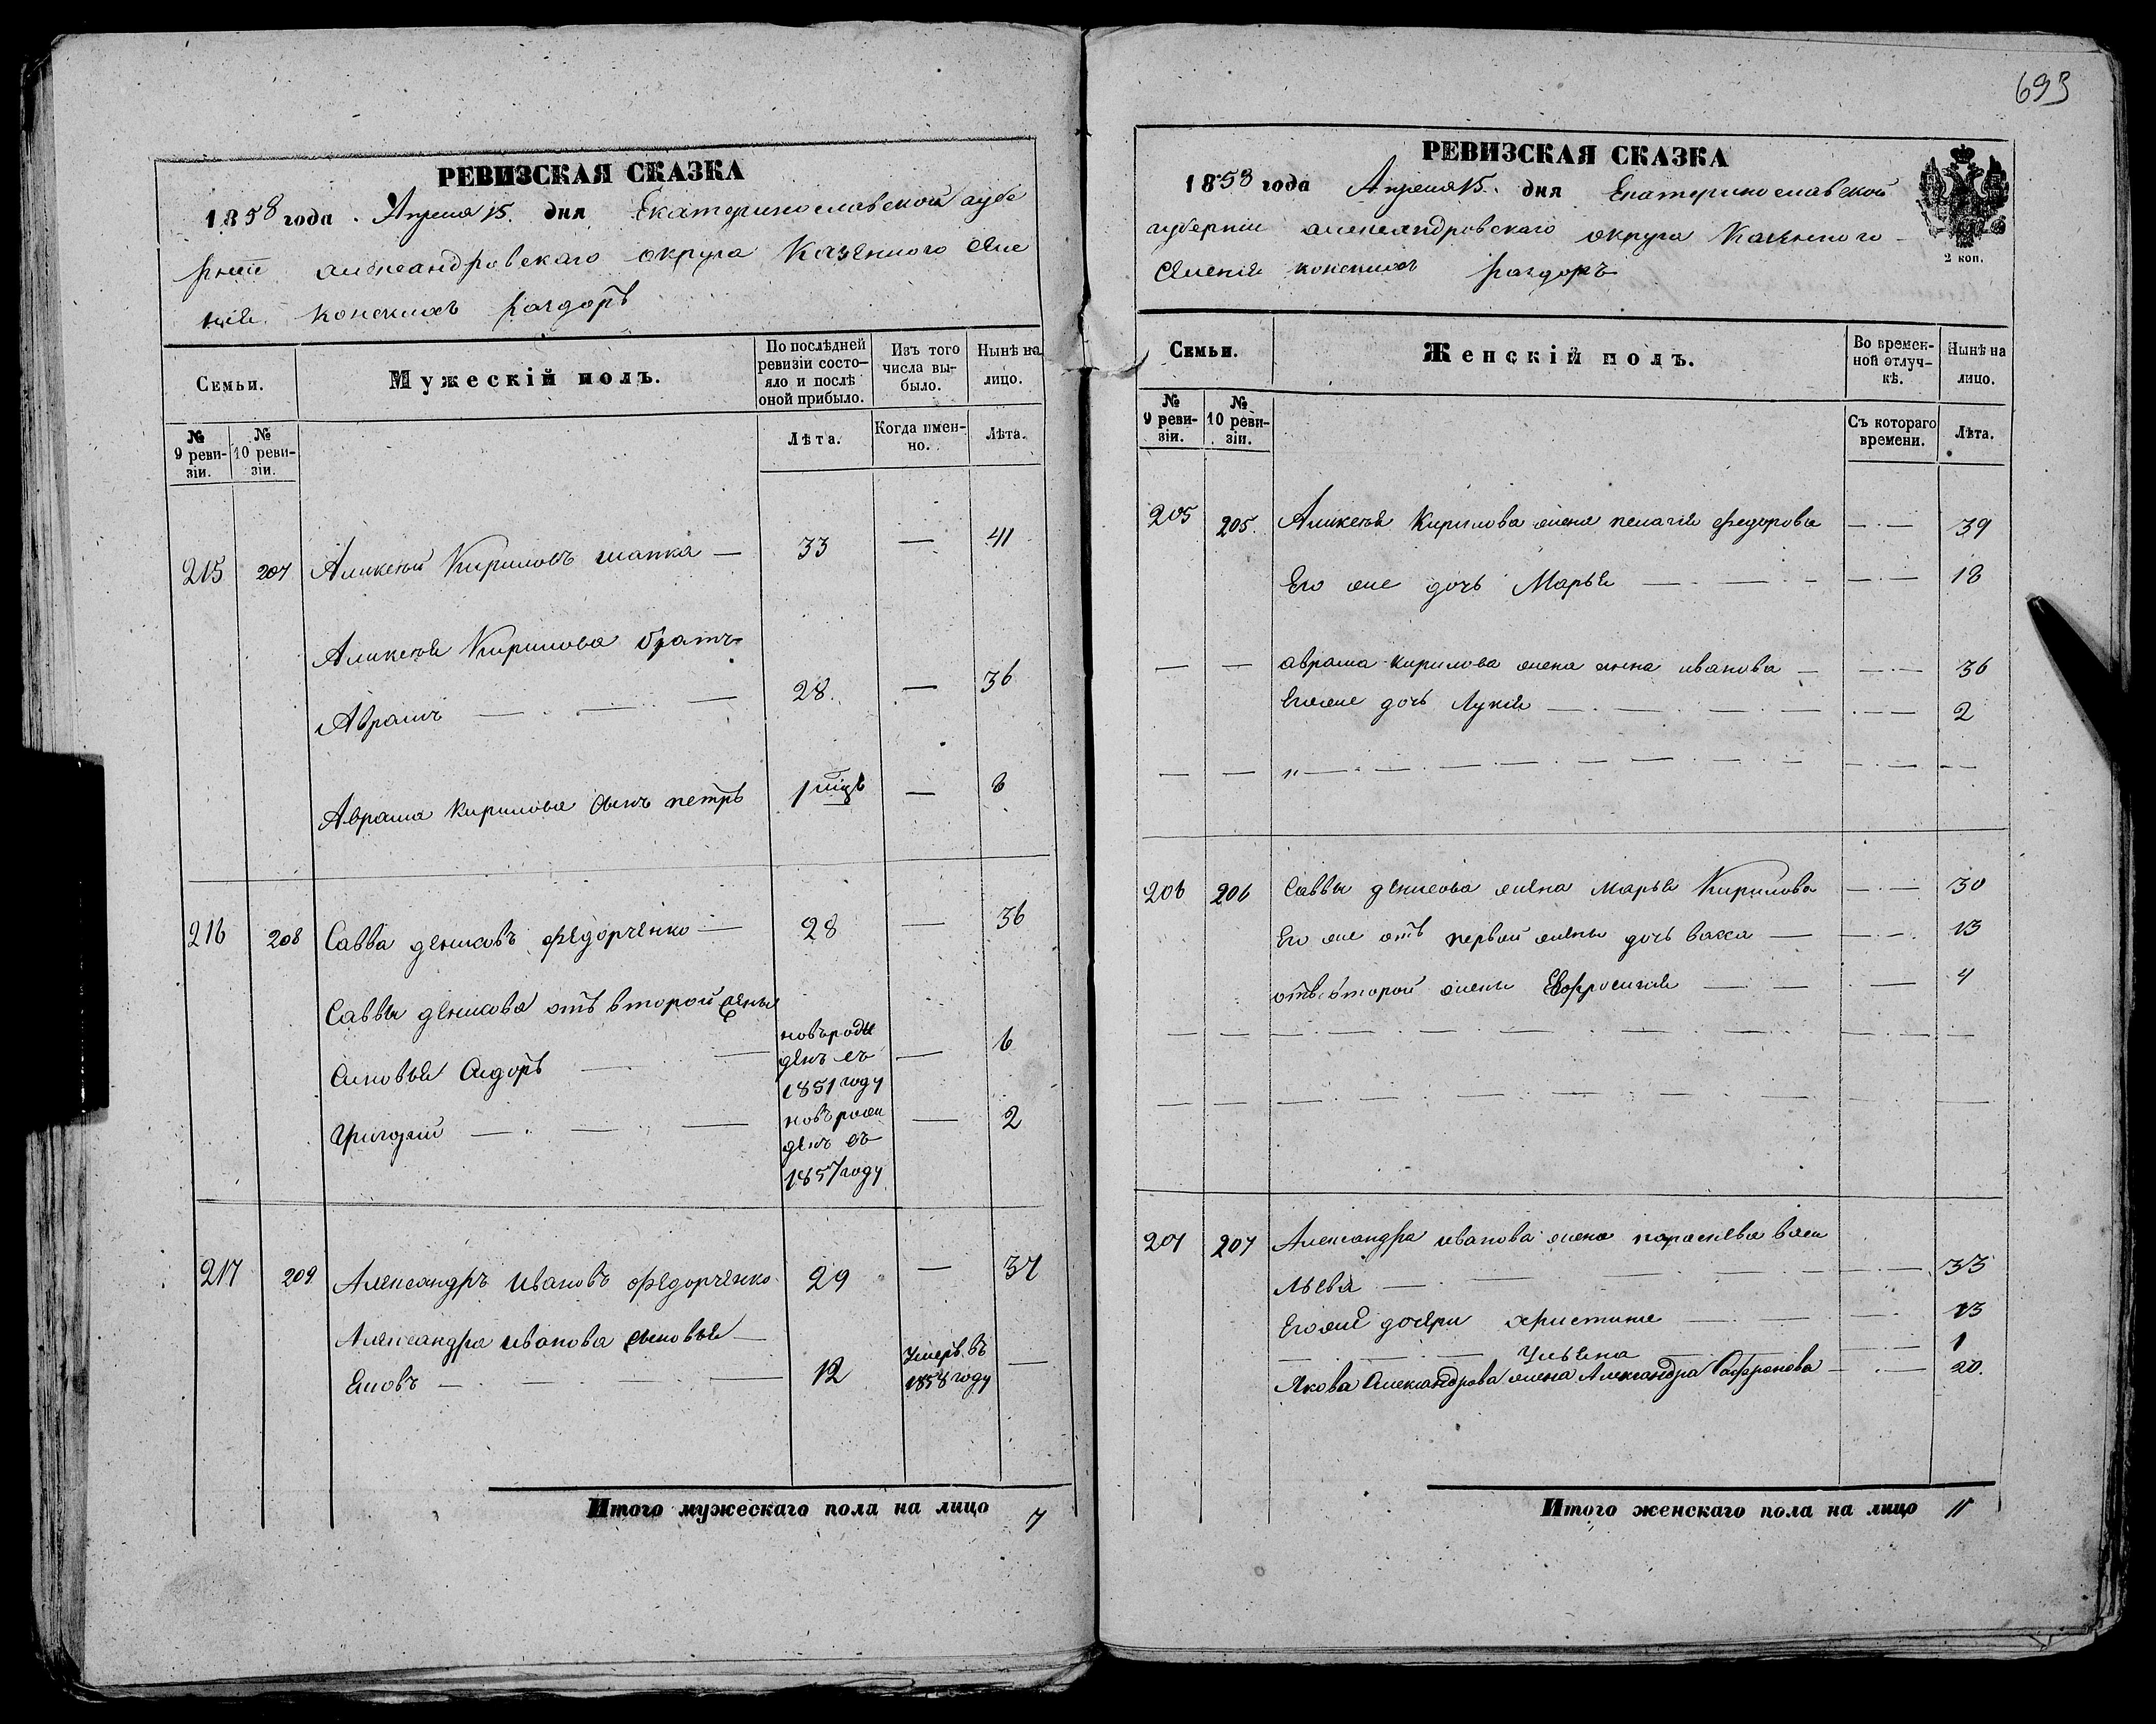 РЕВИЗСКАЯ СКАЗКА
1858 года Апреля 15. дня Екатеринославской губе
рніи александровскаго округа Казеннаго селе
нія конскихъ раздоръ
Семьи.
Мужескій полъ.
По послѣдней ревизіи состо-
яло и послѣ оной прибыло.
Изъ того числа вы-
было.
Нынѣ на лицо.
№ 9 реви-
зіи.
№ 10 реви-
зіи.
Лѣта.
Когда имен-
но.
Лѣта.
215 207 Аликсѣй Кириловъ шапка — 33 — 41
Аликсѣя Кирилова братъ
Аврамъ — 28. — 36
Аврама Кирилова сынъ петръ 1 мцъ — 8
216 208 Савва денисовъ федорченко — 28 — 36
Саввы денисова отъ второй жены
сыновья Сидоръ — новърожденъ въ 1851 году — 6
Григорій — новърожденъ въ 1857 году — 2
217 209 Александръ Ивановъ федорченко 29 — 37
Александра иванова сыновья —
Яковъ — 12 Умеръ въ 1858 году —
Итого мужескаго пола на лицо 7
693
РЕВИЗСКАЯ СКАЗКА
1858 года Апреля 15. дня Екатеринославской
губерніи александровскаго округа Казеннаго
селенія конскихъ раздоръ
2 коп.
Семьи.
Женскій полъ.
Во времен-
ной отлуч-
кѣ.
Нынѣ на лицо.
№ 9 реви-
зіи.
№ 10 реви-
зіи.
Съ котораго времени.
Лѣта.
205 205. Аликсѣя Кирилова жена пелагія федорова — 39
Его же дочь Марья — 18
— — аврама кирилова жена анна иванова — 36
Егоже дочь Лукія — 2
206 206 Саввы денисова жена марья Кирилова — 30
Его же отъ первой жены дочь васса — 13
отъ второй жены Ефросинія — 4
207 207 Александра иванова жена параскева васи
льева — 33
Егоже дочери христина — 13
Ульяна — 1
Якова Александрова жена Александра Сафронова — 20.
Итого женскаго пола на лицо 11